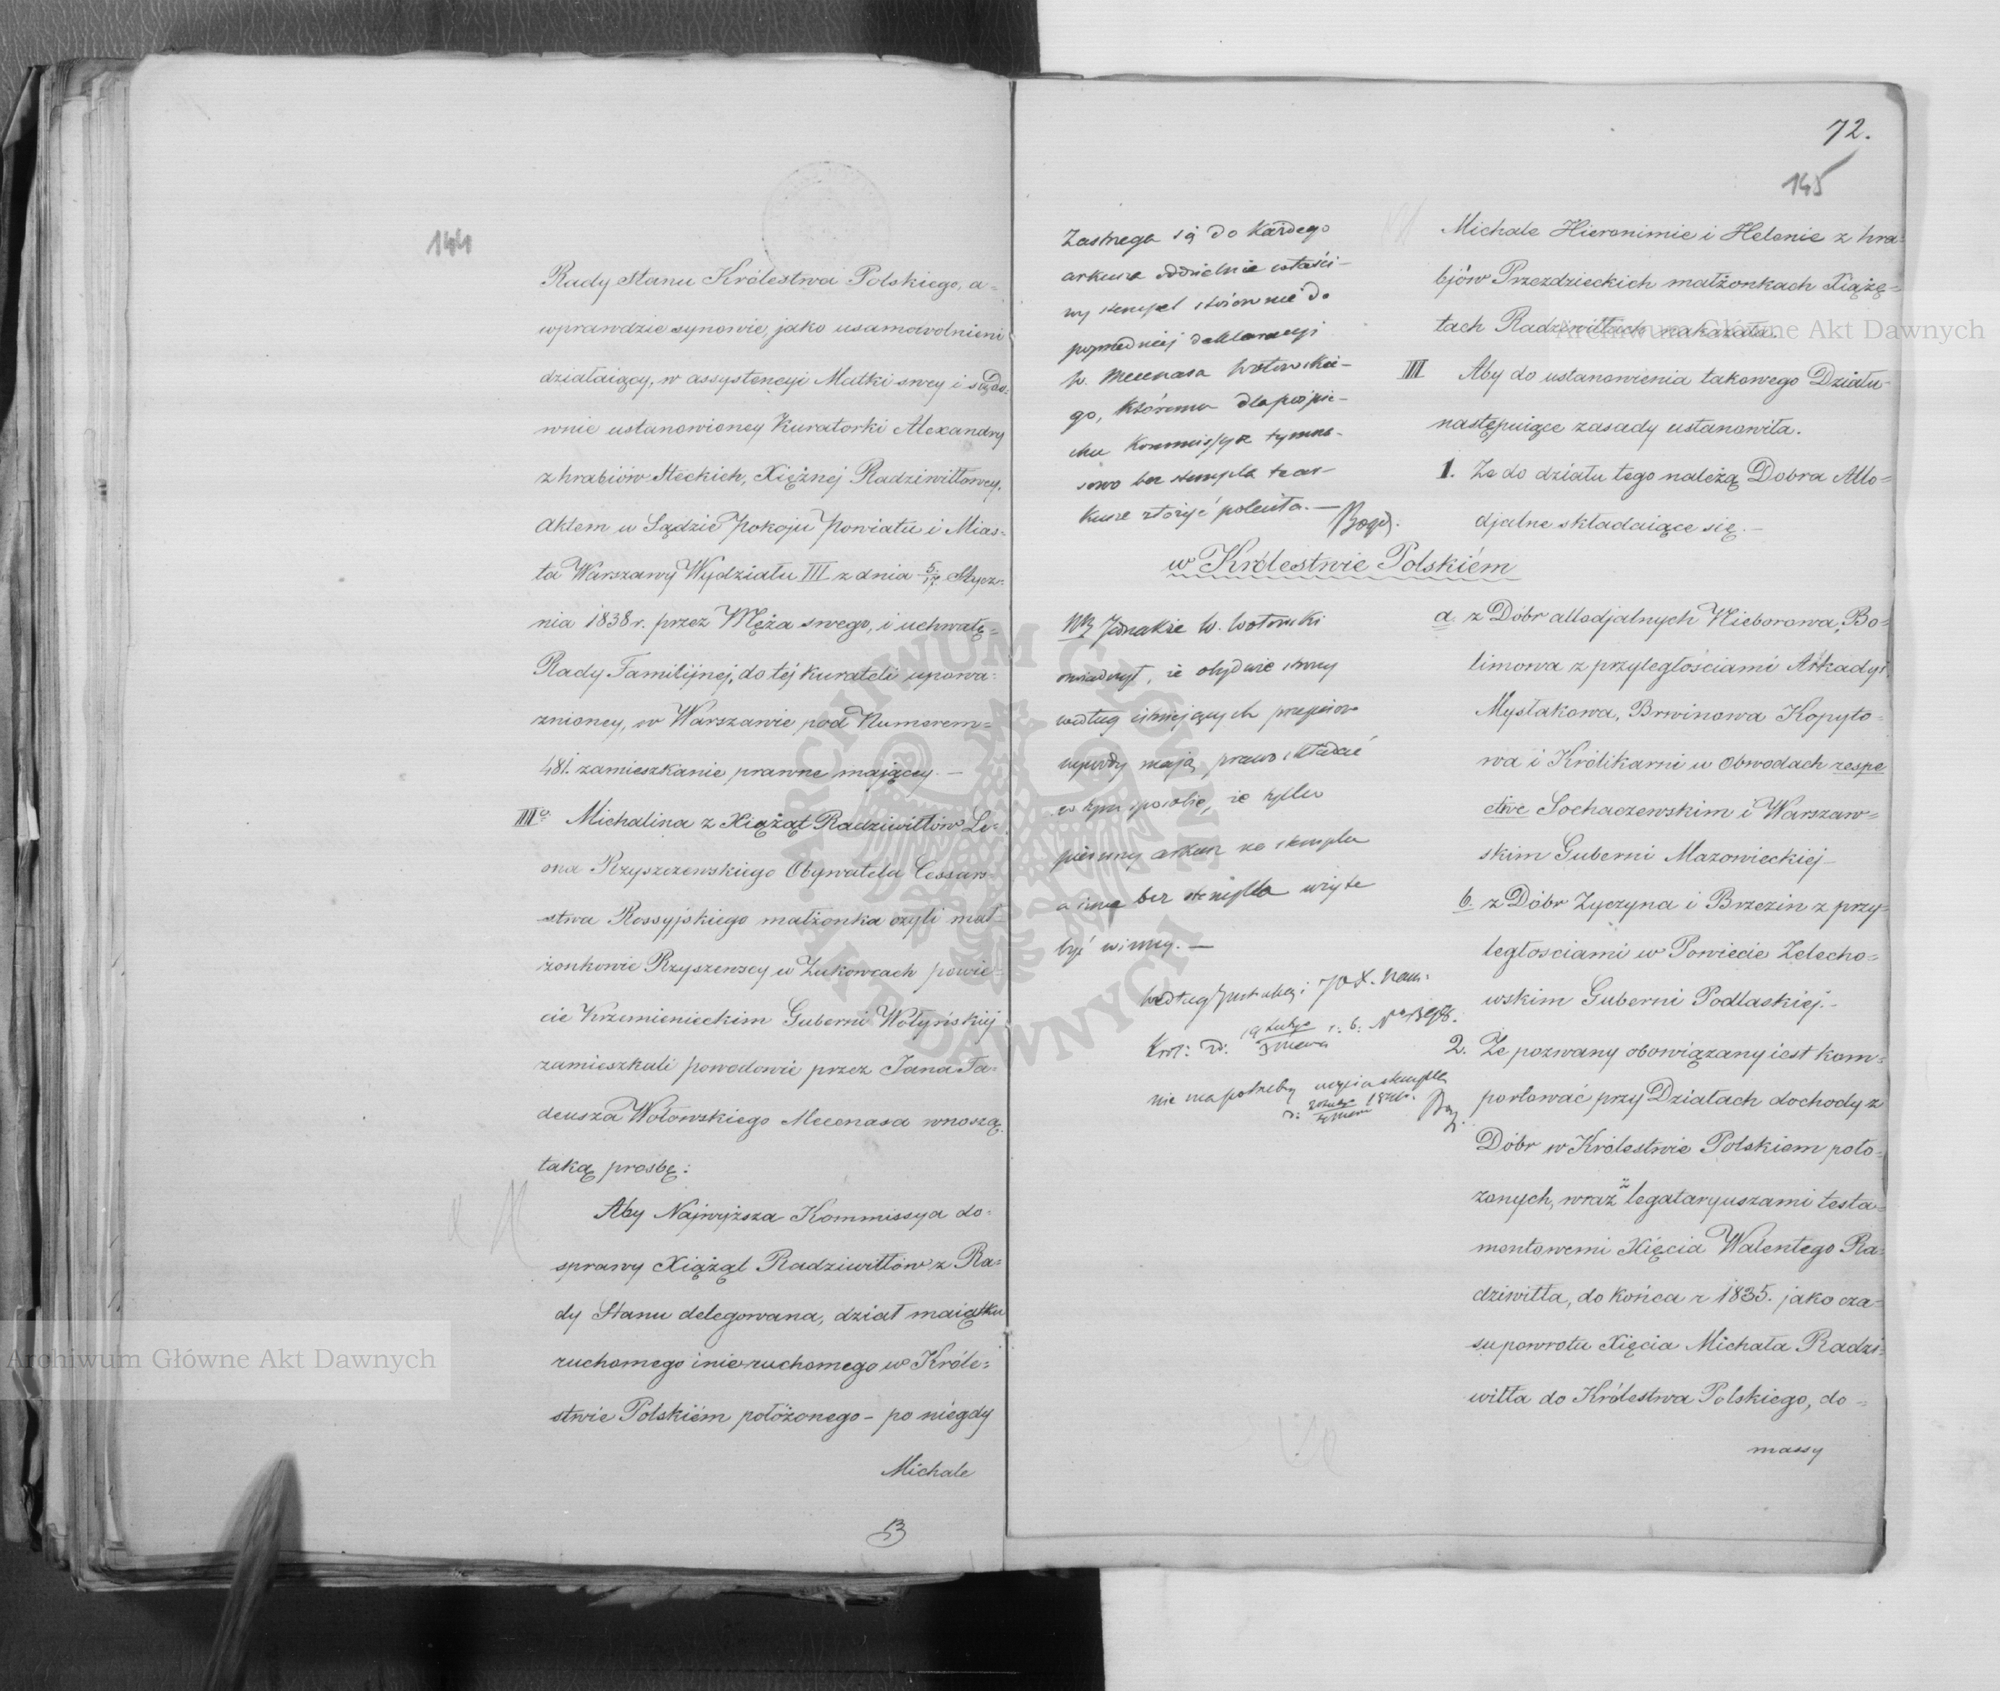 144
Rady Stanu Królestwa Polskiego, a-
wprawdzie synowie, jako usamowolnieni
działaiący, w assystencyi Matki swey i sądo-
wnie ustanowioney Kuratorki Alexandry
z hrabiów Steckich, Xiężnej Radziwiłłowey,
aktem w Sądzie Pokoju Powiatu i Mias-
ta Warszawy Wydziału III z dnia 5/17 Stycz-
nia 1838 r. przez Męża swego, i uchwałę-
Rady Familijnej, do téj kurateli upowa-
żnioney, w Warszawie pod Numerem-
481. zamieszkanie prawne mającey. —
III° Michalina z Xiążąt Radziwiłłów Le-
ona Rzyszczewskiego Obywatela Cessar-
stwa Rossyjskiego małżonka czyli mał-
żonkowie Rzyszewscy w Zukowcach powie-
cie Krzemienieckim Guberni Wołyńskiej
zamieszkali powodowie przez Jana Ta-
deusza Wołowskiego Mecenasa wnoszą
taką prosbę:
Aby Najwyższa Kommissya do-
sprawy Xiążąt Radziwiłłów z Ra-
dy Stanu delegowana, dział maiątku
ruchomego i nieruchomego w Króle-
stwie Polskiém położonego - po niegdy
Michale
72.
145
Zastrzega się do każdego
arkusza oddzielnie właści-
wy stempel stosownie do
poprzedniej deklaracyi
W. Mecenasa Wołowskie-
go, któremu dla pośpie-
chu Kommissya tymcza-
sowo bez stempla te ar-
kusze złożyć poleciła. —
w Królestwie Polskiém
NB Jednakże W. Wołowski
oswiadczył, że obydwie strony
według istniejących przepisów
wywody mają prawo składać
w tym sposobie, że tylko
pierwszy arkusz na stemplu
a inne bez stempla użyte
być winny. —
Według
Król: d: N° 13978.
nie ma potrzeby użycia stempla
Michale Hieronimie i Helenie z hra-
bjów Przezdzieckich małżonkach Xiążę-
tach Radziwiłłach nakazała.
III Aby do ustanowienia takowego Działu-
następuiące zasady ustanowiła.
1. Ze do działu tego należą Dobra Allo-
djalne składaiące się. —
a. z Dóbr allodjalnych Nieborowa, Bo-
limowa z przyległościami Arkadyi
Mysłakowa, Brwinowa Kopyto-
wa i Królikarni w Obwodach respe
ctive Sochaczewskim i Warszaw-
skim Guberni Mazowieckiej —
b. z Dóbr Zyczyna i Brzezin z przy-
ległosciami w Powiecie Zelecho-
wskim Guberni Podlaskiej. —
2. Ze pozwany obowiązany iest kom-
portować przy Działach dochody z
Dóbr w Królestwie Polskiem poło-
żonych, wraz z legataryuszami testa-
mentowemi Xięcia Walentego Ra-
dziwiłła, do końca r 1835. jako cza-
su powrotu Xięcia Michała Radzi-
wiłła do Królestwa Polskiego, do -
massy
Archiwum Główne Akt Dawnych
Archiwum Główne Akt Dawnych
ARCHIWUM GŁÓWNE AKT DAWNYCH